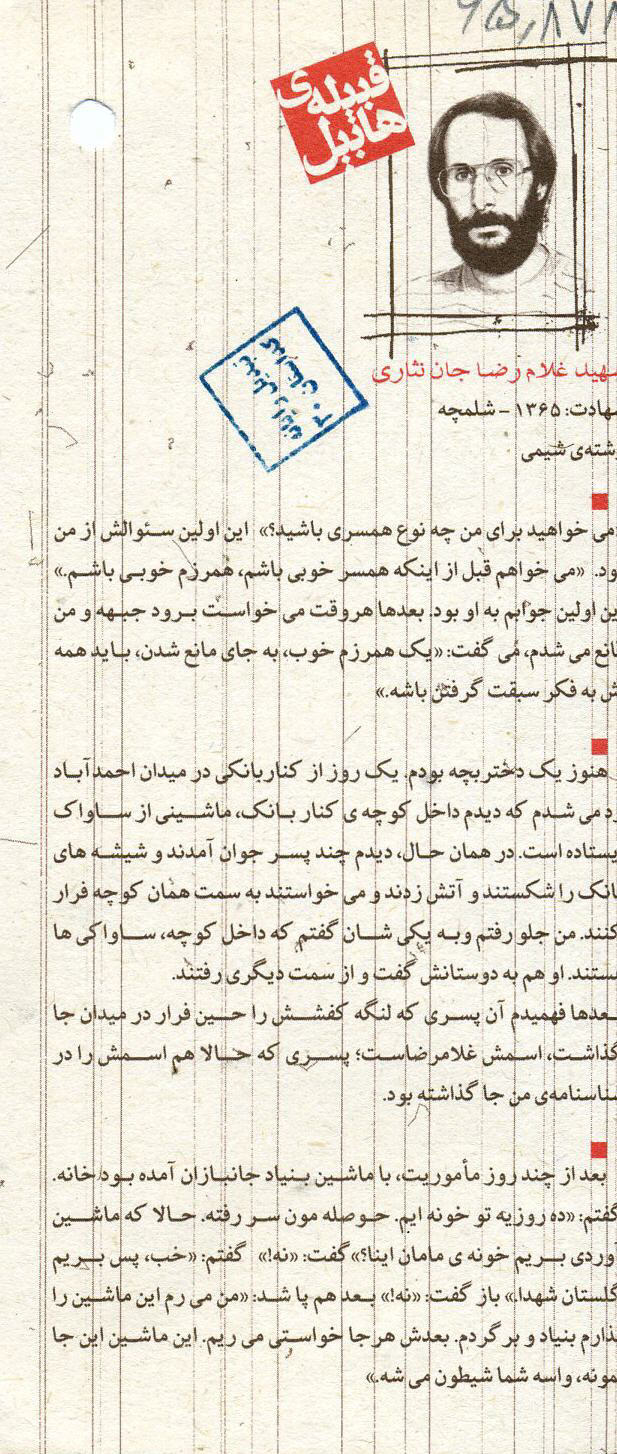 ۹۵,۸۷۸
قبیله‌ی
هابیل
شهید غلام رضا جان نثاری
شهادت: ۱۳۶۵ - شلمچه
رشته‌ی شیمی
«می خواهید برای من چه نوع همسری باشید؟» این اولین سئوالش از من
بود. «می خواهم قبل از اینکه همسر خوبی باشم، همرزم خوبی باشم.»
این اولین جوابم به او بود. بعدها هروقت می خواست برود جبهه و من
مانع می شدم، می گفت: «یک همرزم خوب، به جای مانع شدن، باید همه
ش به فکر سبقت گرفتن باشه.»
هنوز یک دختربچه بودم. یک روز از کنار بانکی در میدان احمدآباد
رد می شدم که دیدم داخل کوچه ی کنار بانک، ماشینی از ساواک
ایستاده است. در همان حال، دیدم چند پسر جوان آمدند و شیشه های
بانک را شکستند و آتش زدند و می خواستند به سمت همان کوچه فرار
کنند. من جلو رفتم وبه یکی شان گفتم که داخل کوچه، ساواکی ها
هستند. او هم به دوستانش گفت و از سمت دیگری رفتند.
بعدها فهمیدم آن پسری که لنگه کفشش را حین فرار در میدان جا
گذاشت، اسمش غلامرضاست؛ پسری که حالا هم اسمش را در
شناسنامه‌ی من جا گذاشته بود.
بعد از چند روز مأموریت، با ماشین بنیاد جانبازان آمده بود خانه.
گفتم: «ده روزیه تو خونه ایم. حوصله مون سر رفته. حالا که ماشین
آوردی بریم خونه ی مامان اینا؟» گفت: «نه!» گفتم: «خب، پس بریم
گلستان شهدا.» باز گفت: «نه!» بعد هم پا شد: «من می رم این ماشین را
بذارم بنیاد و برگردم. بعدش هرجا خواستی می ریم. این ماشین این جا
بمونه، واسه شما شیطون می شه.»